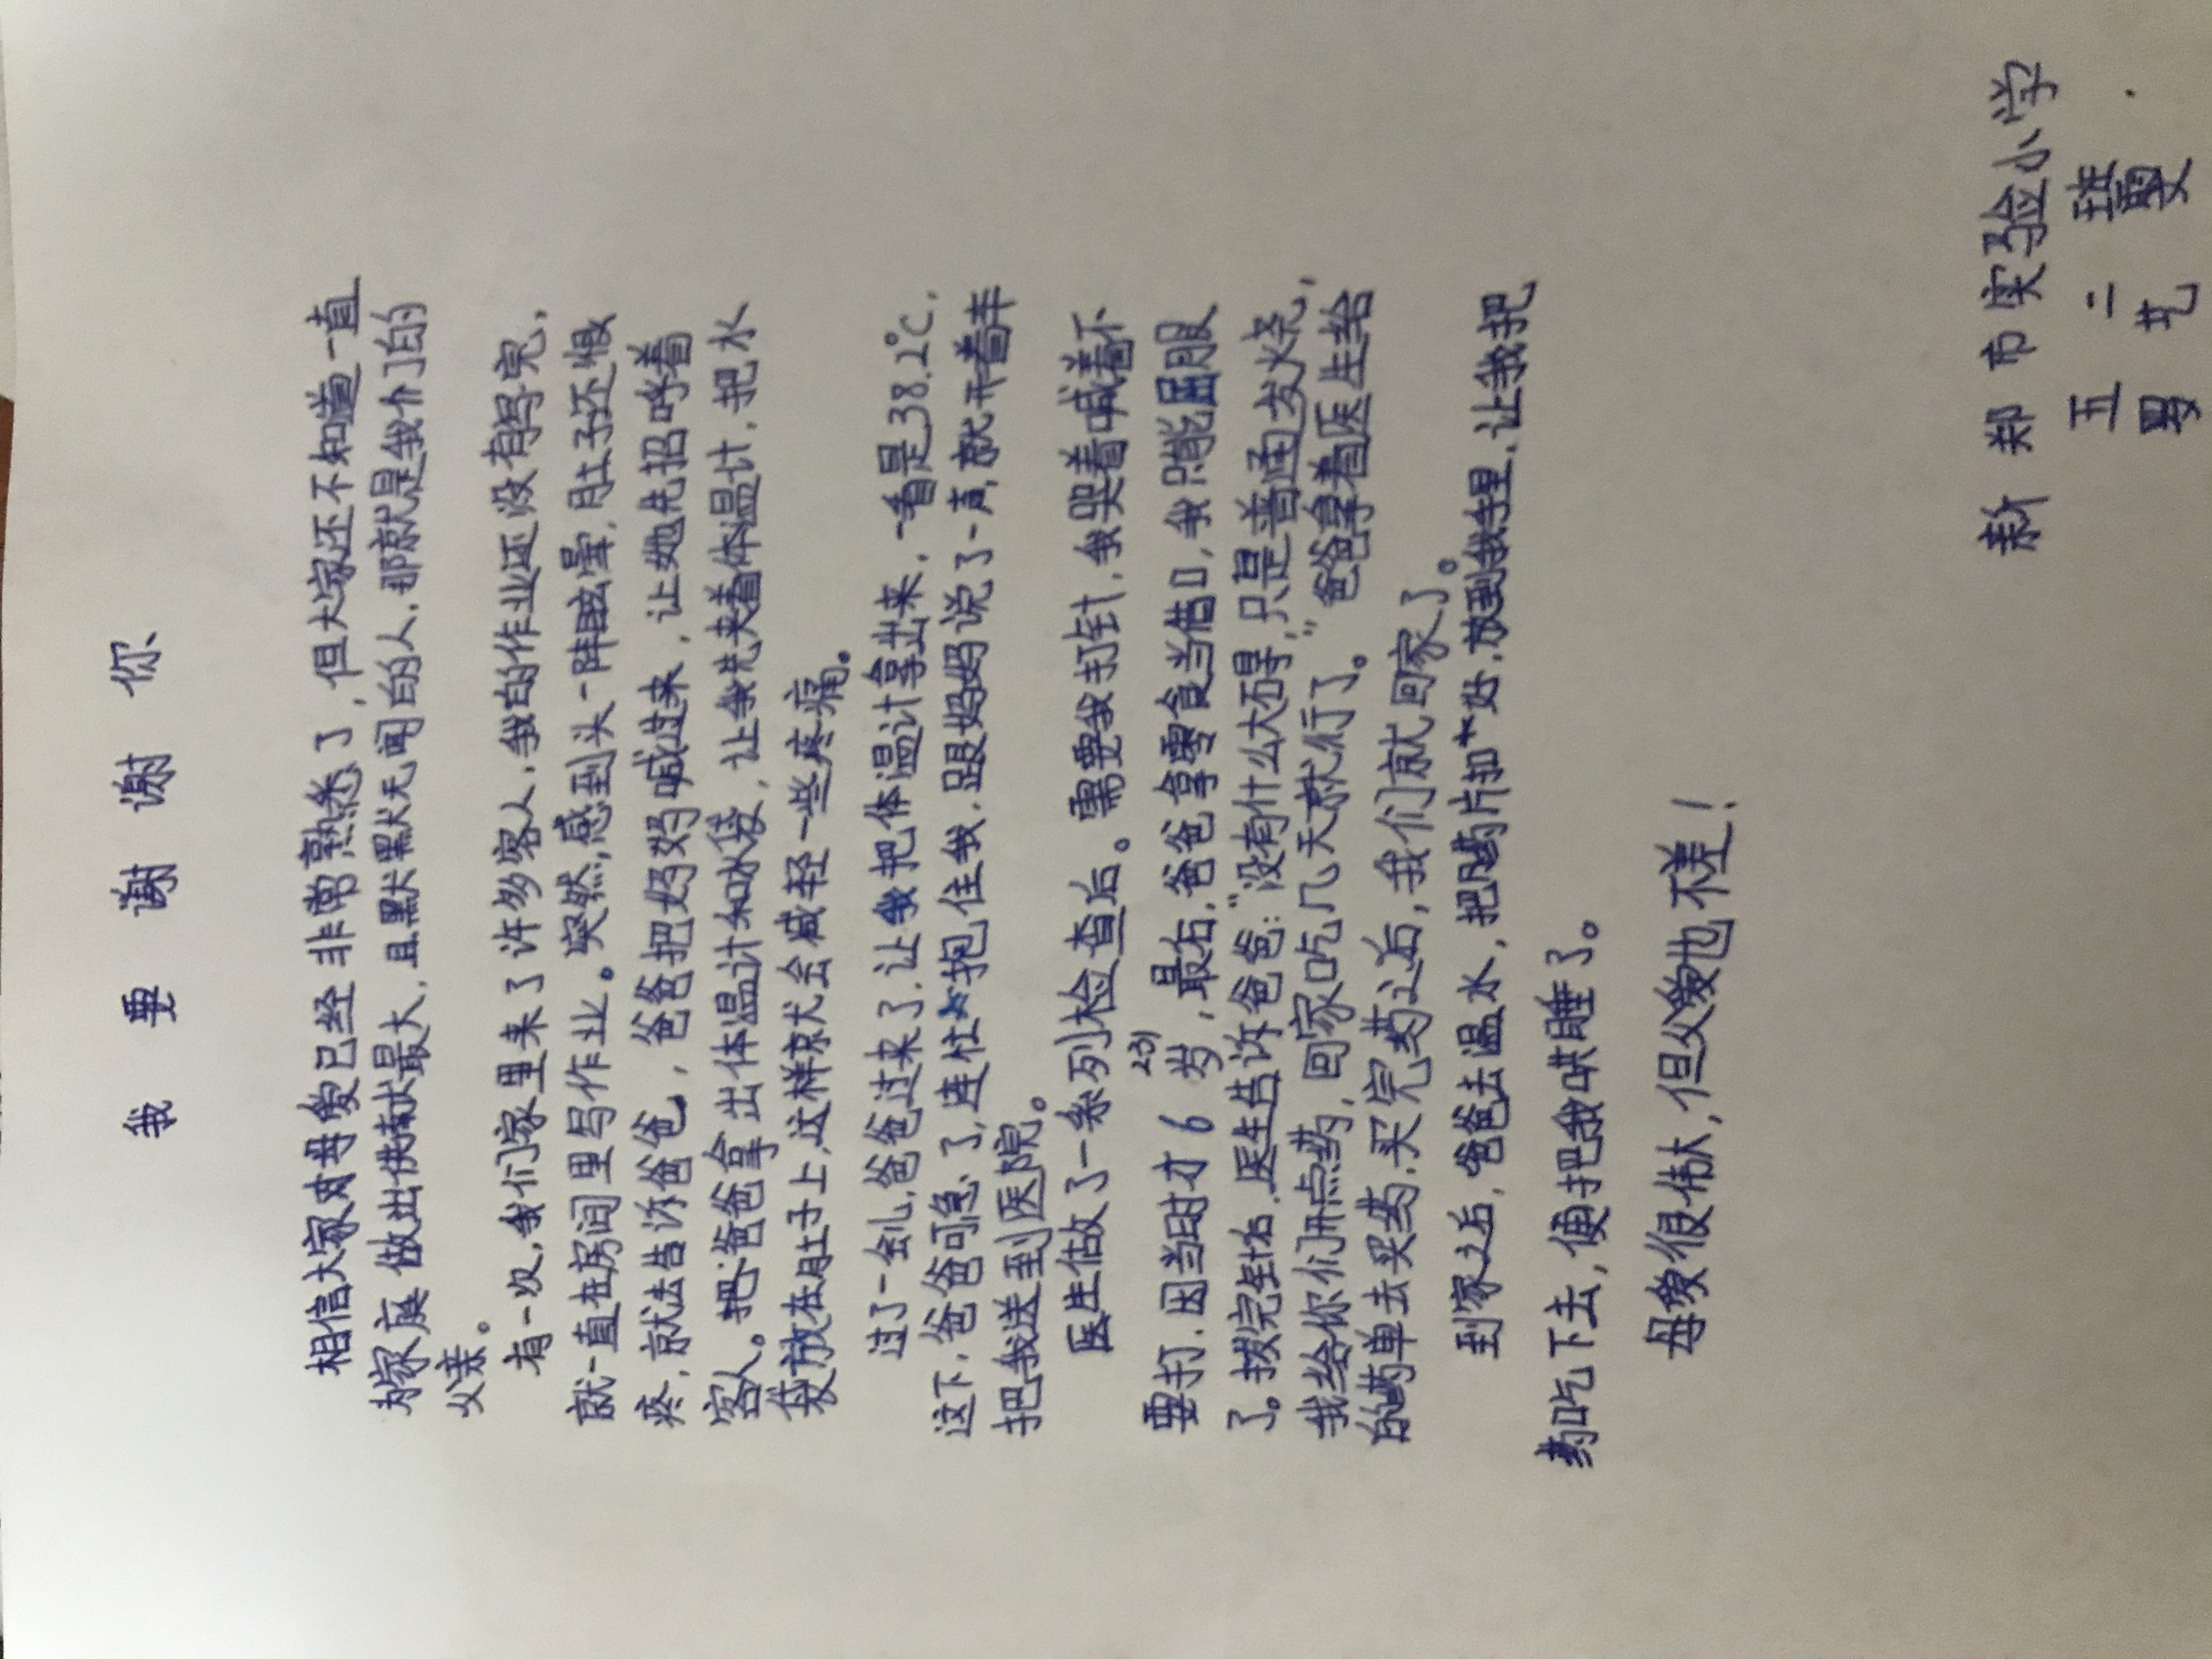 我要谢谢你
相信大家对母爱已经非常熟悉了，但大家还不知道一直
为家庭做出供献最大，且默默无闻的人，那就是我们的
父亲。
有一次，我们家里来了许多客人，我的作业还没有写完，
就一直在房间里写作业。突然，感到头一阵眩晕，肚子还很
疼，就去告诉爸爸，爸爸把妈妈喊过来，让她先招呼着
客人。把爸爸拿出体温计和水袋，让我先夹着体温计，把水
袋放在肚子上，这样就会减轻一些疼痛。
过了一会儿，爸爸过来了，让我把体温计拿出来，一看是38.2℃，
这下，爸爸可急了，连忙抱住我，跟妈妈说了一声，就开着车
把我送到医院。
医生做了一系列检查后。需要我打针，我哭着喊着不
要打，因当时才6岁，最后，爸爸拿零食当借口，我只能屈服
了。拔完针后，医生告诉爸爸：“没有什么大不碍，只是普通发火烧，
我给你们开点药，回家吃几天就行了。”爸爸拿着医生给
的药单去买药，买完药之后，我们就回家了。
到家之后，爸爸去温水，把药片扣好，放到我手里，让我把
药吃下去，便把我哄睡了。
母爱很伟大，但父爱也不差！
新郑市实验小学
五二班